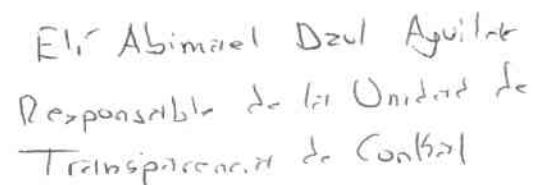 Elí Abimael Dzul Aguilar
Responsable de la Unidad de
Transparencia de Conkal